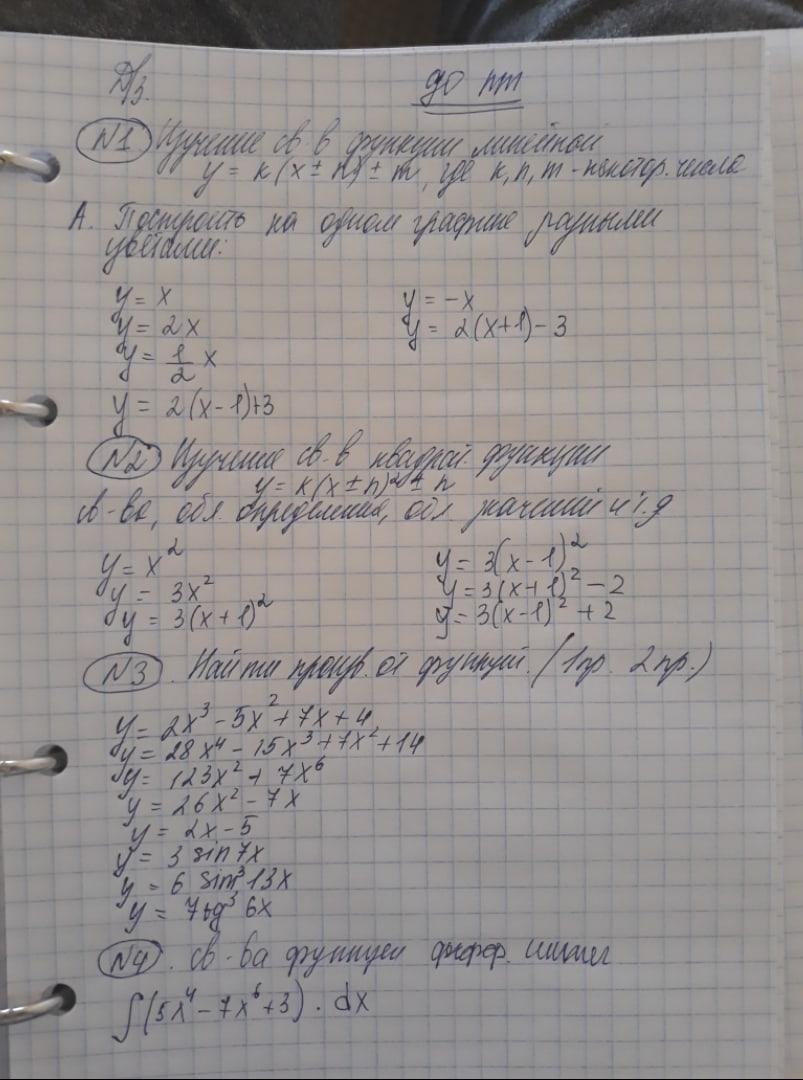 Д/З. до пт
N1 Изучение св-в функции линейной
y = k(x ± n) ± m, где k, n, m - некотор. числа
А. Построить на одном графике разными
цветами:
y = x y = -x
y = 2x y = 2(x+1) - 3
y = 1/2 x
y = 2(x-1)+3
N2 Изучение св-в квадрат. функции
y = k(x ± n)² ± n
св-ва, обл. определения, обл. значений и т.д
y = x² y = 3(x-1)²
y = 3x² y = 3(x+1)² - 2
y = 3(x+1)² y = 3(x-1)² + 2
N3. Найти произв. от функций. (1пр. 2пр.)
y = 2x³ - 5x² + 7x + 4
y = 28x⁴ - 15x³ + 7x² + 14
y = 123x² + 7x⁶
y = 26x² - 7x
y = 2x - 5
y = 3 sin 7x
y = 6 sin³ 13x
y = 7 tg³ 6x
N4. св-ва функций
∫(5x⁴ - 7x⁶ + 3) · dx